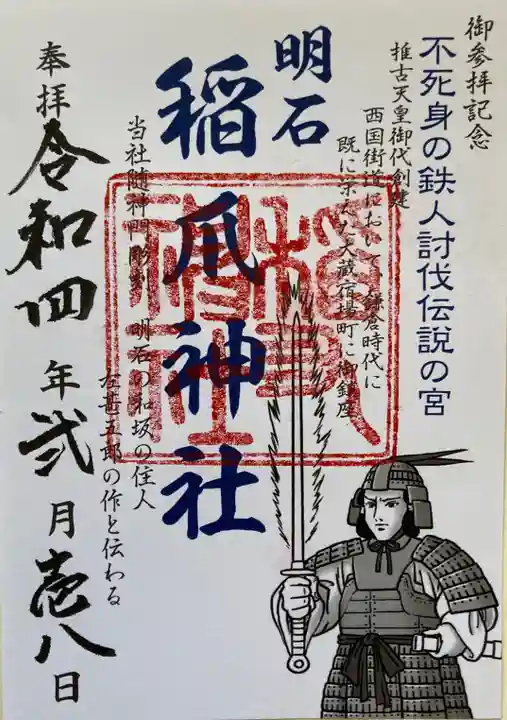 御参拝記念
不死身の鉄人討伐伝説の宮
推古天皇御代創建
西国街道において、鎌倉時代に
既に栄えた大蔵宿場町に御鎮座
明石
稲爪神社
当社随神門彫刻 明石の和坂の住人
左甚五郎の作と伝わる
奉拝
令和四年弐月壱八日